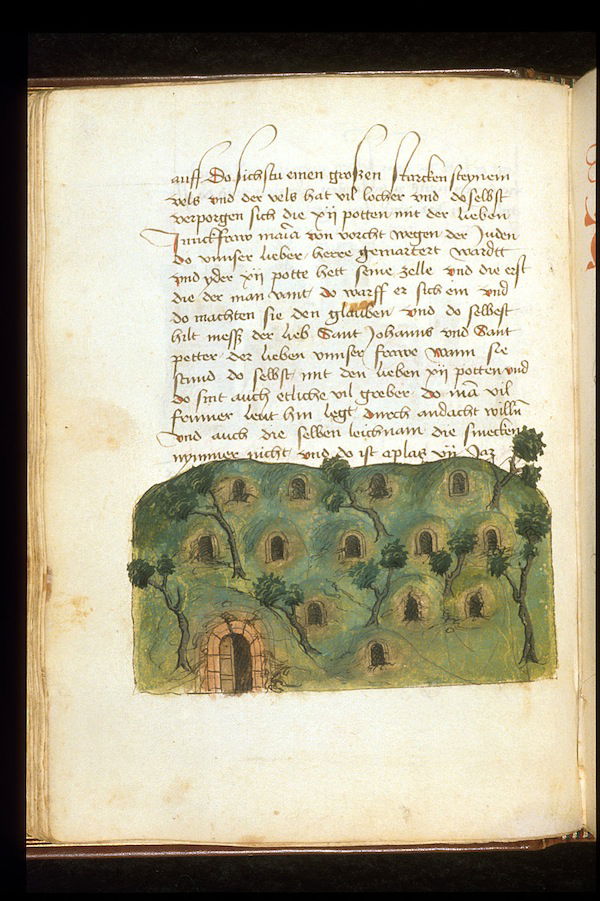 auff Do sichstu einen großen starcken steynein
vels vnd der vels hat vil locher vnd do selbst
verporgen sich die xij potten mit der lieben
Junckfraw maria von vorcht wegen der Juden
do vnnser lieber herre gemartert wardtt
vnd yder xij potte hett seine zelle vnd die erst
die der man vant do warff er sich ein vnd
do machten sie den glauben vnd do selbest
hilt messz der lieb Sant Johanns vnd Sant
petter der lieben vnnser frawe wann sie
stund do selbst mit den lieben xij potten vnd
do sint auch etliche vil greber do man vil
frummer leut hin legt durch andacht willn
vnd auch die selben leichnam die smecken
nymmer nicht vnd do ist aplas vij Jar